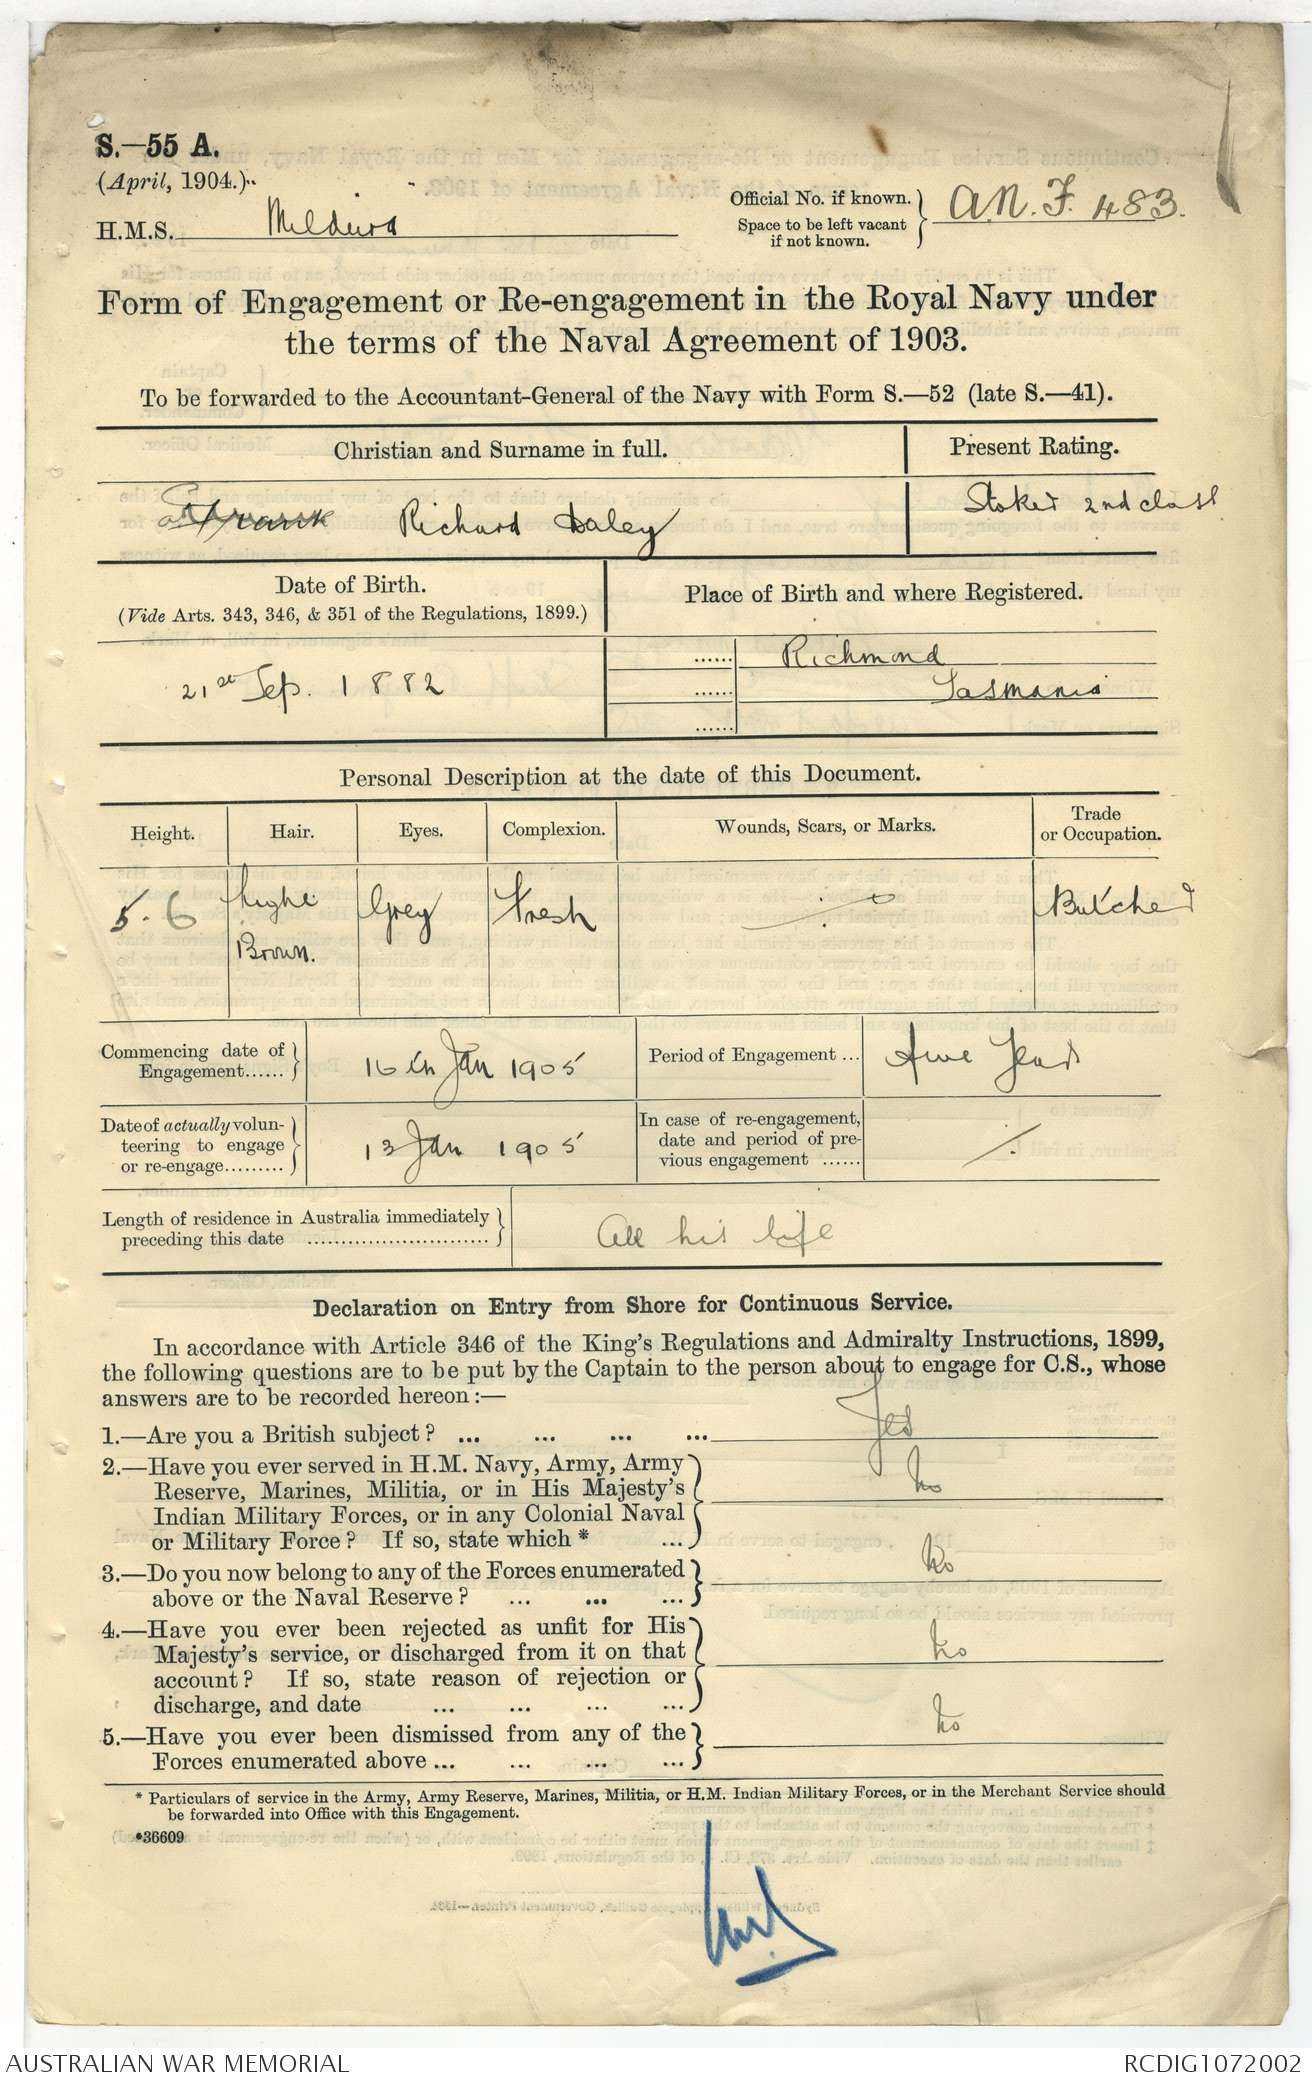 S.—55 A.
(April, 1904.)
H.M.S. Mildura
Official No. if known.
Space to be left vacant
if not known.
A.N.F. 483.
Form of Engagement or Re-engagement in the Royal Navy under
the terms of the Naval Agreement of 1903.
To be forwarded to the Accountant-General of the Navy with Form S.—52 (late S.—41).
Christian and Surname in full.
Present Rating.
Frank Richard Daley
Stoker 2nd class
Date of Birth.
(Vide Arts. 343, 346, & 351 of the Regulations, 1899.)
Place of Birth and where Registered.
21st Sep. 1882
...... Richmond
...... Tasmania
......
Personal Description at the date of this Document.
Height. Hair. Eyes. Complexion. Wounds, Scars, or Marks. Trade
or Occupation.
5.6 Light Grey Fresh Butcher
Brown.
Commencing date of
Engagement......
16th Jan 1905
Period of Engagement ...
Five Years
Date of actually volun-
teering to engage
or re-engage.........
13 Jan 1905
In case of re-engagement,
date and period of pre-
vious engagement ......
Length of residence in Australia immediately
preceding this date ..............................
All his life
Declaration on Entry from Shore for Continuous Service.
In accordance with Article 346 of the King's Regulations and Admiralty Instructions, 1899,
the following questions are to be put by the Captain to the person about to engage for C.S., whose
answers are to be recorded hereon :—
1.—Are you a British subject? ... ... ... ... Yes
2.—Have you ever served in H.M. Navy, Army, Army
Reserve, Marines, Militia, or in His Majesty's
Indian Military Forces, or in any Colonial Naval
or Military Force? If so, state which * ...
No
3.—Do you now belong to any of the Forces enumerated
above or the Naval Reserve? ... ... ...
No
4.—Have you ever been rejected as unfit for His
Majesty's service, or discharged from it on that
account? If so, state reason of rejection or
discharge, and date ... ... ... ...
No
5.—Have you ever been dismissed from any of the
Forces enumerated above ... ... ... ...
No
* Particulars of service in the Army, Army Reserve, Marines, Militia, or H.M. Indian Military Forces, or in the Merchant Service should
be forwarded into Office with this Engagement.
*36609
AUSTRALIAN WAR MEMORIAL
RCDIG1072002